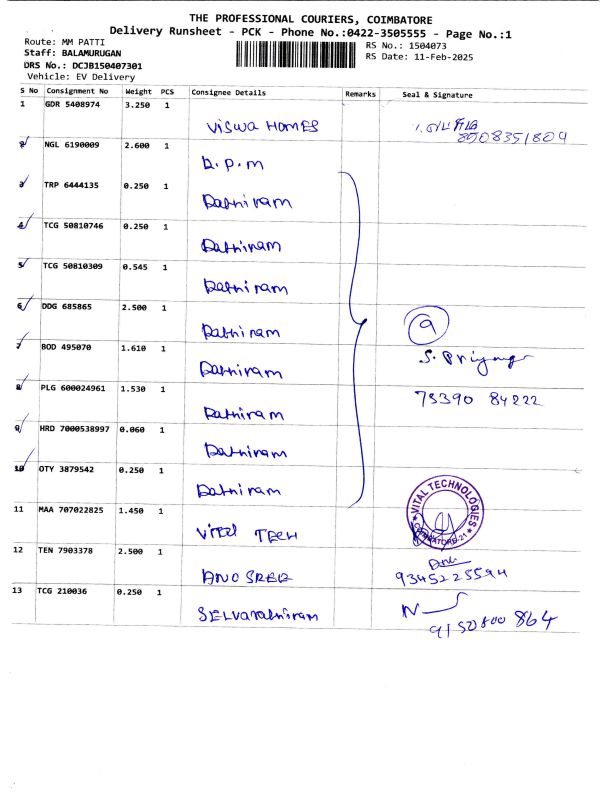 THE PROFESSIONAL COURIERS, COIMBATORE
Delivery Runsheet - PCK - Phone No.:0422-3505555 - Page No.:1
Route: MM PATTI
RS No.: 1504073
Staff: BALAMURUGAN
RS Date: 11-Feb-2025
DRS No.: DCJB150407301
Vehicle: EV Delivery
S No Consignment No Weight PCS Consignee Details Remarks Seal & Signature
1 GDR 5408974 3.250 1
Viswa HOMES
8508351809
2 NGL 6190009 2.600 1
D.P.M
3 TRP 6444135 0.250 1
Rathiram
4 TCG 50810746 0.250 1
Rathiram
5 TCG 50810309 0.545 1
Rathiram
6 DDG 685865 2.500 1
Rathiram
9
7 BOD 495070 1.610 1
Rathiram
S. Priyanga
8 PLG 600024961 1.530 1
Rathiram
75390 84222
9 HRD 7000538997 0.060 1
Rathiram
10 OTY 3879542 0.250 1
Rathiram
11 MAA 707022825 1.450 1
Vital TECH
VITAL TECHNOLOGIES
COIMBATORE-21
12 TEN 7903378 2.500 1
ANO SREE
9345225594
13 TCG 210036 0.250 1
SELVaRathiram
9150800 864